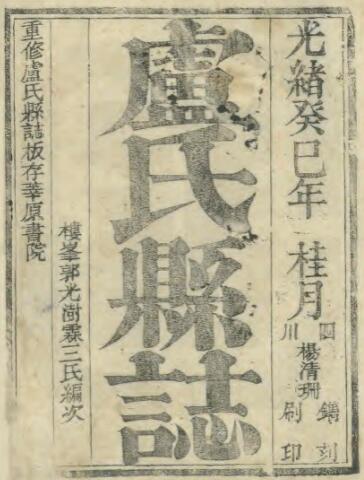 光緒癸巳年 桂月
四川 楊清珊 鐫刻刷印
盧氏縣誌
樓峯郭光澍霖三氏編次
重修盧氏縣誌板存莘原書院